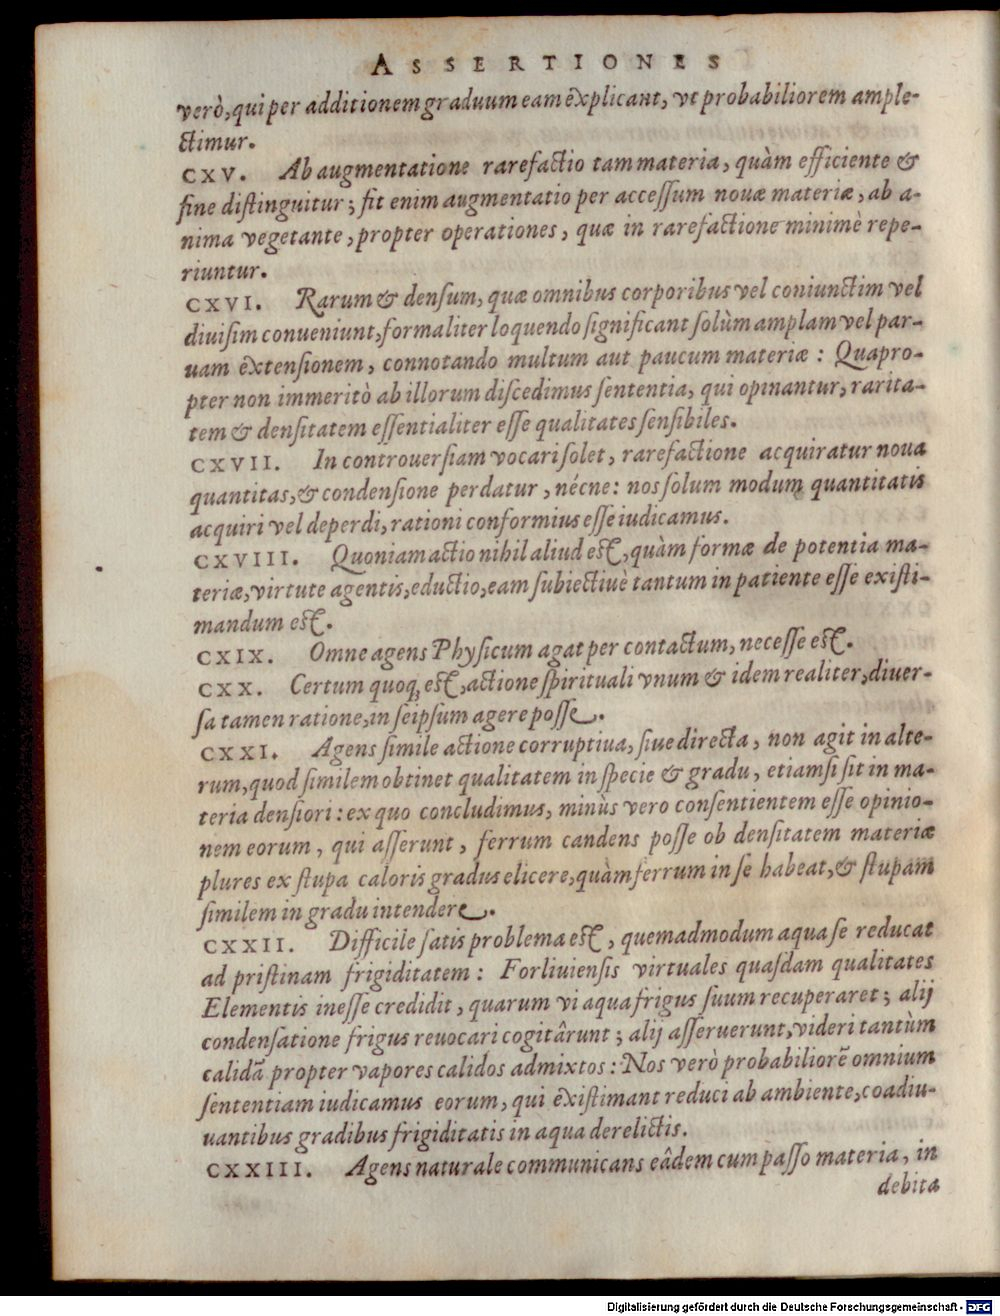 ASSERTIONES
verò, qui per additionem graduum eam explicant, vt probabiliorem ample-
ctimur.
CXV. Ab augmentatione rarefactio tam materia, quàm efficiente &
fine distinguitur; fit enim augmentatio per accessum nouæ materiæ, ab a-
nima vegetante, propter operationes, quæ in rarefactione minimè repe-
riuntur.
CXVI. Rarum & densum, quæ omnibus corporibus vel coniunctim vel
diuisim conueniunt, formaliter loquendo significant solùm amplam vel par-
uam extensionem, connotando multum aut paucum materiæ: Quapro-
pter non immeritò ab illorum discedimus sententia, qui opinantur, rarita-
tem & densitatem essentialiter esse qualitates sensibiles.
CXVII. In controuersiam vocari solet, rarefactione acquiratur noua
quantitas, & condensione perdatur, nécne: nos solum modum quantitatis
acquiri vel deperdi, rationi conformius esse iudicamus.
CXVIII. Quoniam actio nihil aliud est, quàm formæ de potentia ma-
teriæ, virtute agentis, eductio, eam subiectiuè tantum in patiente esse existi-
mandum est.
CXIX. Omne agens Physicum agat per contactum, necesse est.
CXX. Certum quoq; est, actione spirituali vnum & idem realiter, diuer-
sa tamen ratione, in seipsum agere posse.
CXXI. Agens simile actione corruptiua, siue directa, non agit in alte-
rum, quod similem obtinet qualitatem in specie & gradu, etiamsi sit in ma-
teria densiori: ex quo concludimus, minùs vero consentientem esse opinio-
nem eorum, qui asserunt, ferrum candens posse ob densitatem materiæ
plures ex stupa caloris gradus elicere, quàm ferrum in se habeat, & stupam
similem in gradu intendere.
CXXII. Difficile satis problema est, quemadmodum aqua se reducat
ad pristinam frigiditatem: Forliuiensis virtuales quasdam qualitates
Elementis inesse credidit, quarum vi aqua frigus suum recuperaret; alij
condensatione frigus reuocari cogitârunt; alij asseruerunt, videri tantùm
calidā propter vapores calidos admixtos: Nos verò probabiliorē omnium
sententiam iudicamus eorum, qui existimant reduci ab ambiente, coadiu-
uantibus gradibus frigiditatis in aqua derelictis.
CXXIII. Agens naturale communicans eâdem cum passo materia, in
debita
Digitalisierung gefördert durch die Deutsche Forschungsgemeinschaft - DFG